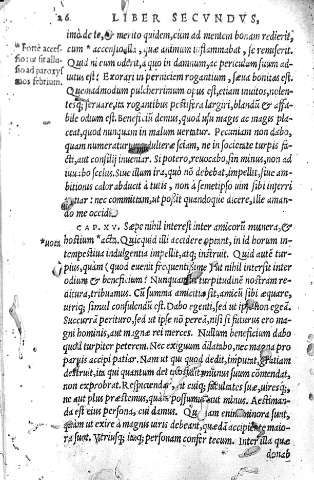 26 LIBER SECVNDVS,
imò de te, & merito quidem, cùm ad mentem bonam redierit,
cum * accensio illa, quæ animum inflammabat, se remiserit.
* Fortè acces-
sio: ut sit allu-
sio ad paroxys
mos febrium.
Quid ni eum oderit, à quo in damnum, ac periculum suum adiu-
tus est? Exorari in perniciem rogantium, sæua bonitas est.
Quemadmodum pulcherrimum opus est, etiam inuitos, nolen-
tesq; seruare, ita rogantibus pestifera largiri, blandū & affa-
bile odium est. Beneficiū demus, quod usu magis ac magis pla-
ceat, quod nunquam in malum uertatur. Pecuniam non dabo,
quam numeraturum adulteræ sciam, ne in societate turpis fa-
cti, aut consilij inueniar. Si potero, reuocabo, sin minus, non ad
iuuabo scelus. Siue illum ira, quò nō debebat, impellit, siue am-
bitionis calor abducit à tutis, non à semetipso uim sibi inferri
patiar: nec committam, ut possit quandoque dicere, ille aman-
do me occidit.
CAP. XV. Sæpe nihil interest inter amicorū munera, &
hostium * acta. Quicquid illi accidere optant, in id horum in-
tempestiua indulgentia impellit, atq; instruit. Quid autē tur-
pius, quàm (quod euenit frequentissime) ut nihil intersit inter
odium & beneficium? Nunquam in turpitudinē nostram re-
aitura, tribuamus. Cū summa amicitiæ sit, amicū sibi æquare,
utriq; simul consulendū est. Dabo egenti, sed ut ipse non egeā.
Succurrā perituro, sed ut ipse nō peream, nisi si futurus ero ma
gni hominis, aut magnæ rei merces. Nullum beneficium dabo
quod turpiter peterem. Nec exiguum dilatabo, nec magna pro
paruis accipi patiar. Nam ut qui quod dedit, imputat, gratiam
destruit, ita qui quantum det ostendit, munus suum cōmendat,
non exprobrat. Respiciendæ sunt cuiq; facultates suæ, uiresq;,
ne aut plus præstemus, quàm possumus, aut minus. Aestiman-
da est eius persona, cui damus. Quædam enim minora sunt,
quàm ut exire à magnis uiris debeant, quædā accipiente maio
ra sunt. Vtriusq; itaq; personam confer tecum. Inter illa quæ
donab